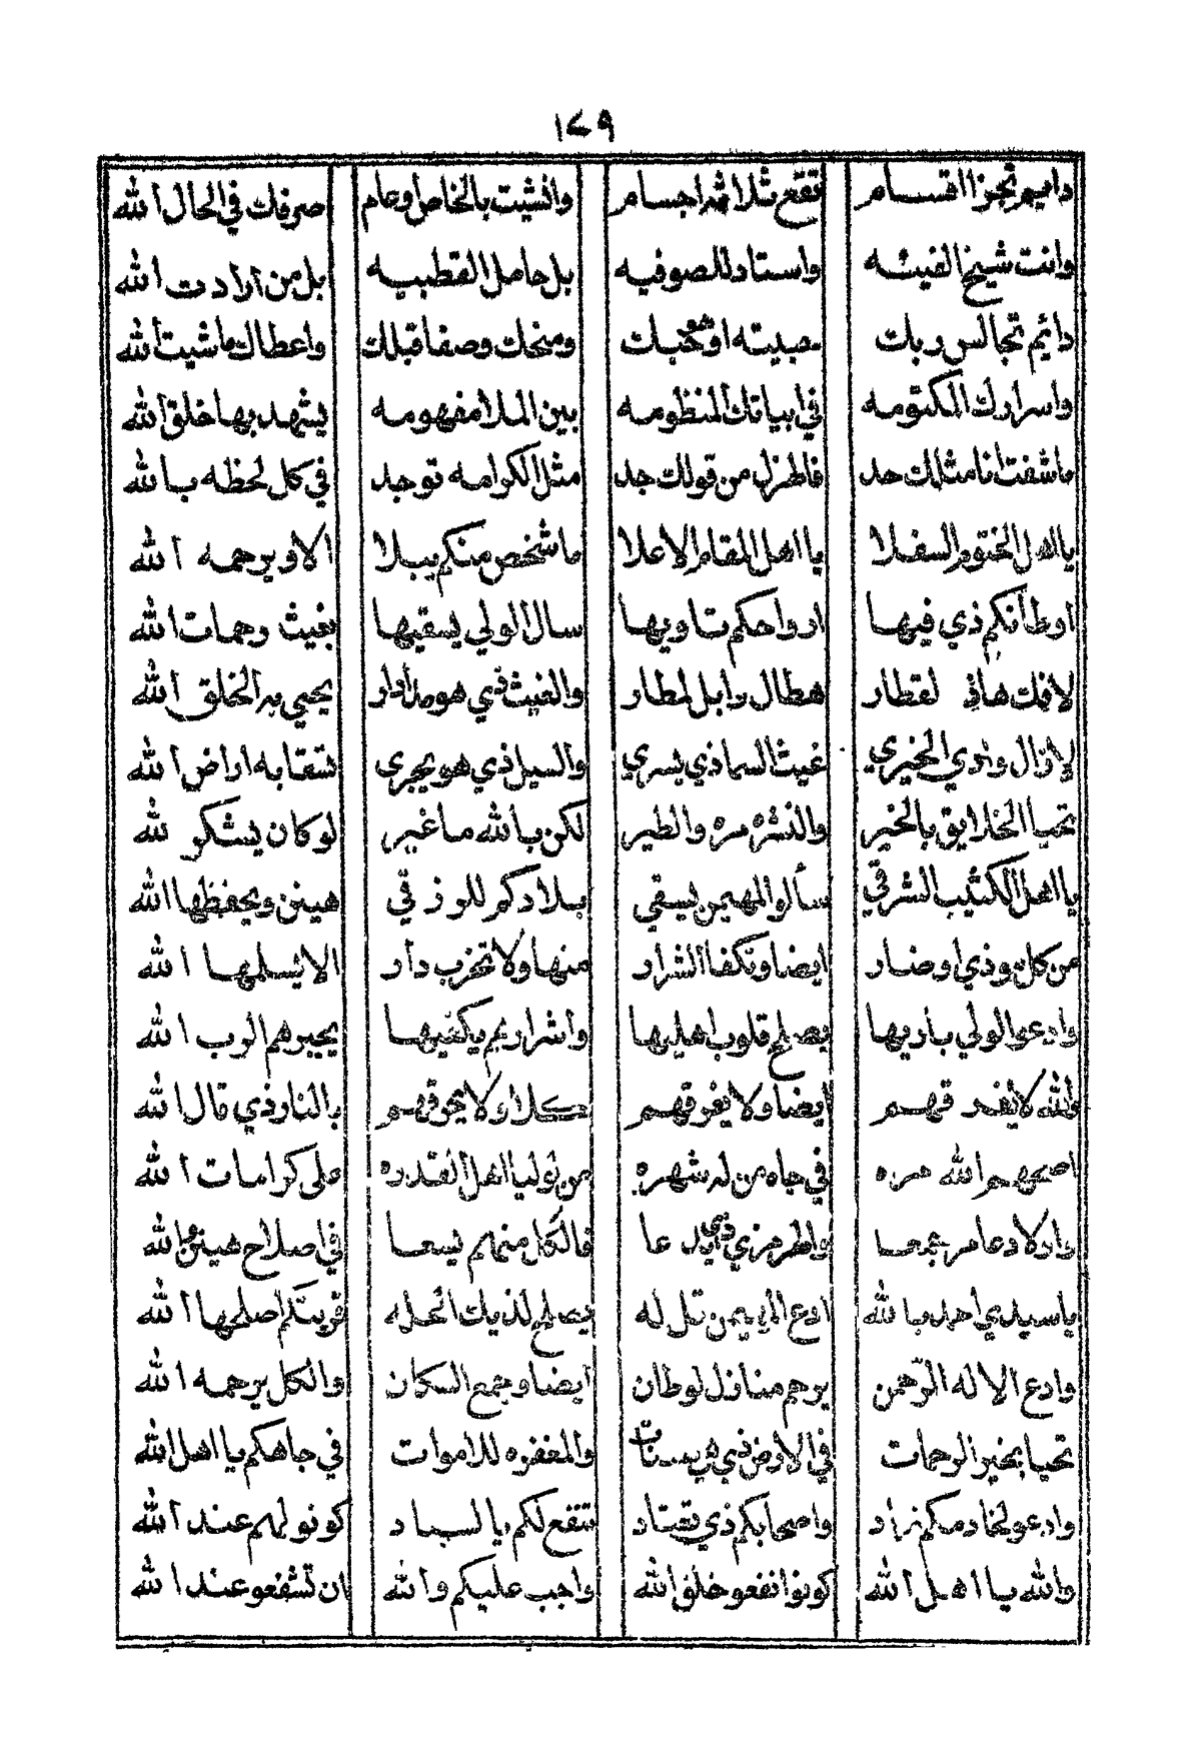 ١٤٩
دايم تجزا اقسام تقع ثلاثه اجسام وانشيت بالخاص وعام صرفك في الحال الله
وانت شيخ الفيئه واستاد للصوفيه بل حامل القطبيه بل من ارادت الله
دائم تجالس ربك ومنحك وصفا قبلك واعطاك ما شيت الله
واسرارك المكتومه في ابياتك المنظومه بين الملا مفهومه يشهد بها خلق الله
ما شفت انا مثلك حد من قولك جد مثل الكرامه توجد في كل لحظه بالله
يا اهل الختوم السفلا يا اهل المقام الاعلا ما شخص منكم يبلا الا ويرحمه الله
اوطانكم ذي فيها ارواحكم تاويها سال الولي يسقيها بغيث رحمات الله
لقطار هطال وابل لمطار والغيث ذي هو مدرار يحيي به الخلق الله
لازال وادي الخيري غيث السما ذي يسري والسيل ذي هو يجري تسقا به اراض الله
تحيا الخلايق بالخير والطير لكن بالله ما غير لو كان يشكر لله
يا اهل الكثيب الشرقي سألو المهيمن يسقي بلادكم للرزقي هينن ويحفظها الله
من كل وذي اوضار ايضا وتكفا الشرار منها ولا تخرب دار الا يسلمها الله
وادعوا لولي باريها يصلح قلوب اهليها واشراريم يكفيها يجيرهم الرب الله
والله لا يفرقهم ايضا ولا يغرقهم كلا ولا يحرقهم بالنار ذي قال الله
اصحهم الله مره في جاه من له شهره من اوليا اهل القدره على كرامات الله
واولاد عامر جمعا والهرمزي عا فالكل منهم يسعا في اصلاح هينن الله
يا سيدي احمد بالله ادع المهيمن تل له يصلح لذيك الحله قريتكم اصلحها الله
وادع الاله الرحمن يرحم منازل لوطان ايضا وجمع السكان والكل يرحمه الله
تحيا بخير الرحمات في الارض ذي هي والمغفره للاموات في جاهكم يا اهل الله
وادعو لخادمكم زاد واصحابكم ذي تنفع لكم يالسياد كونو لهم عند الله
والله يا اهل الله كونوا نفعو خلق الله واجب عليكم والله ان تشفعو عند الله